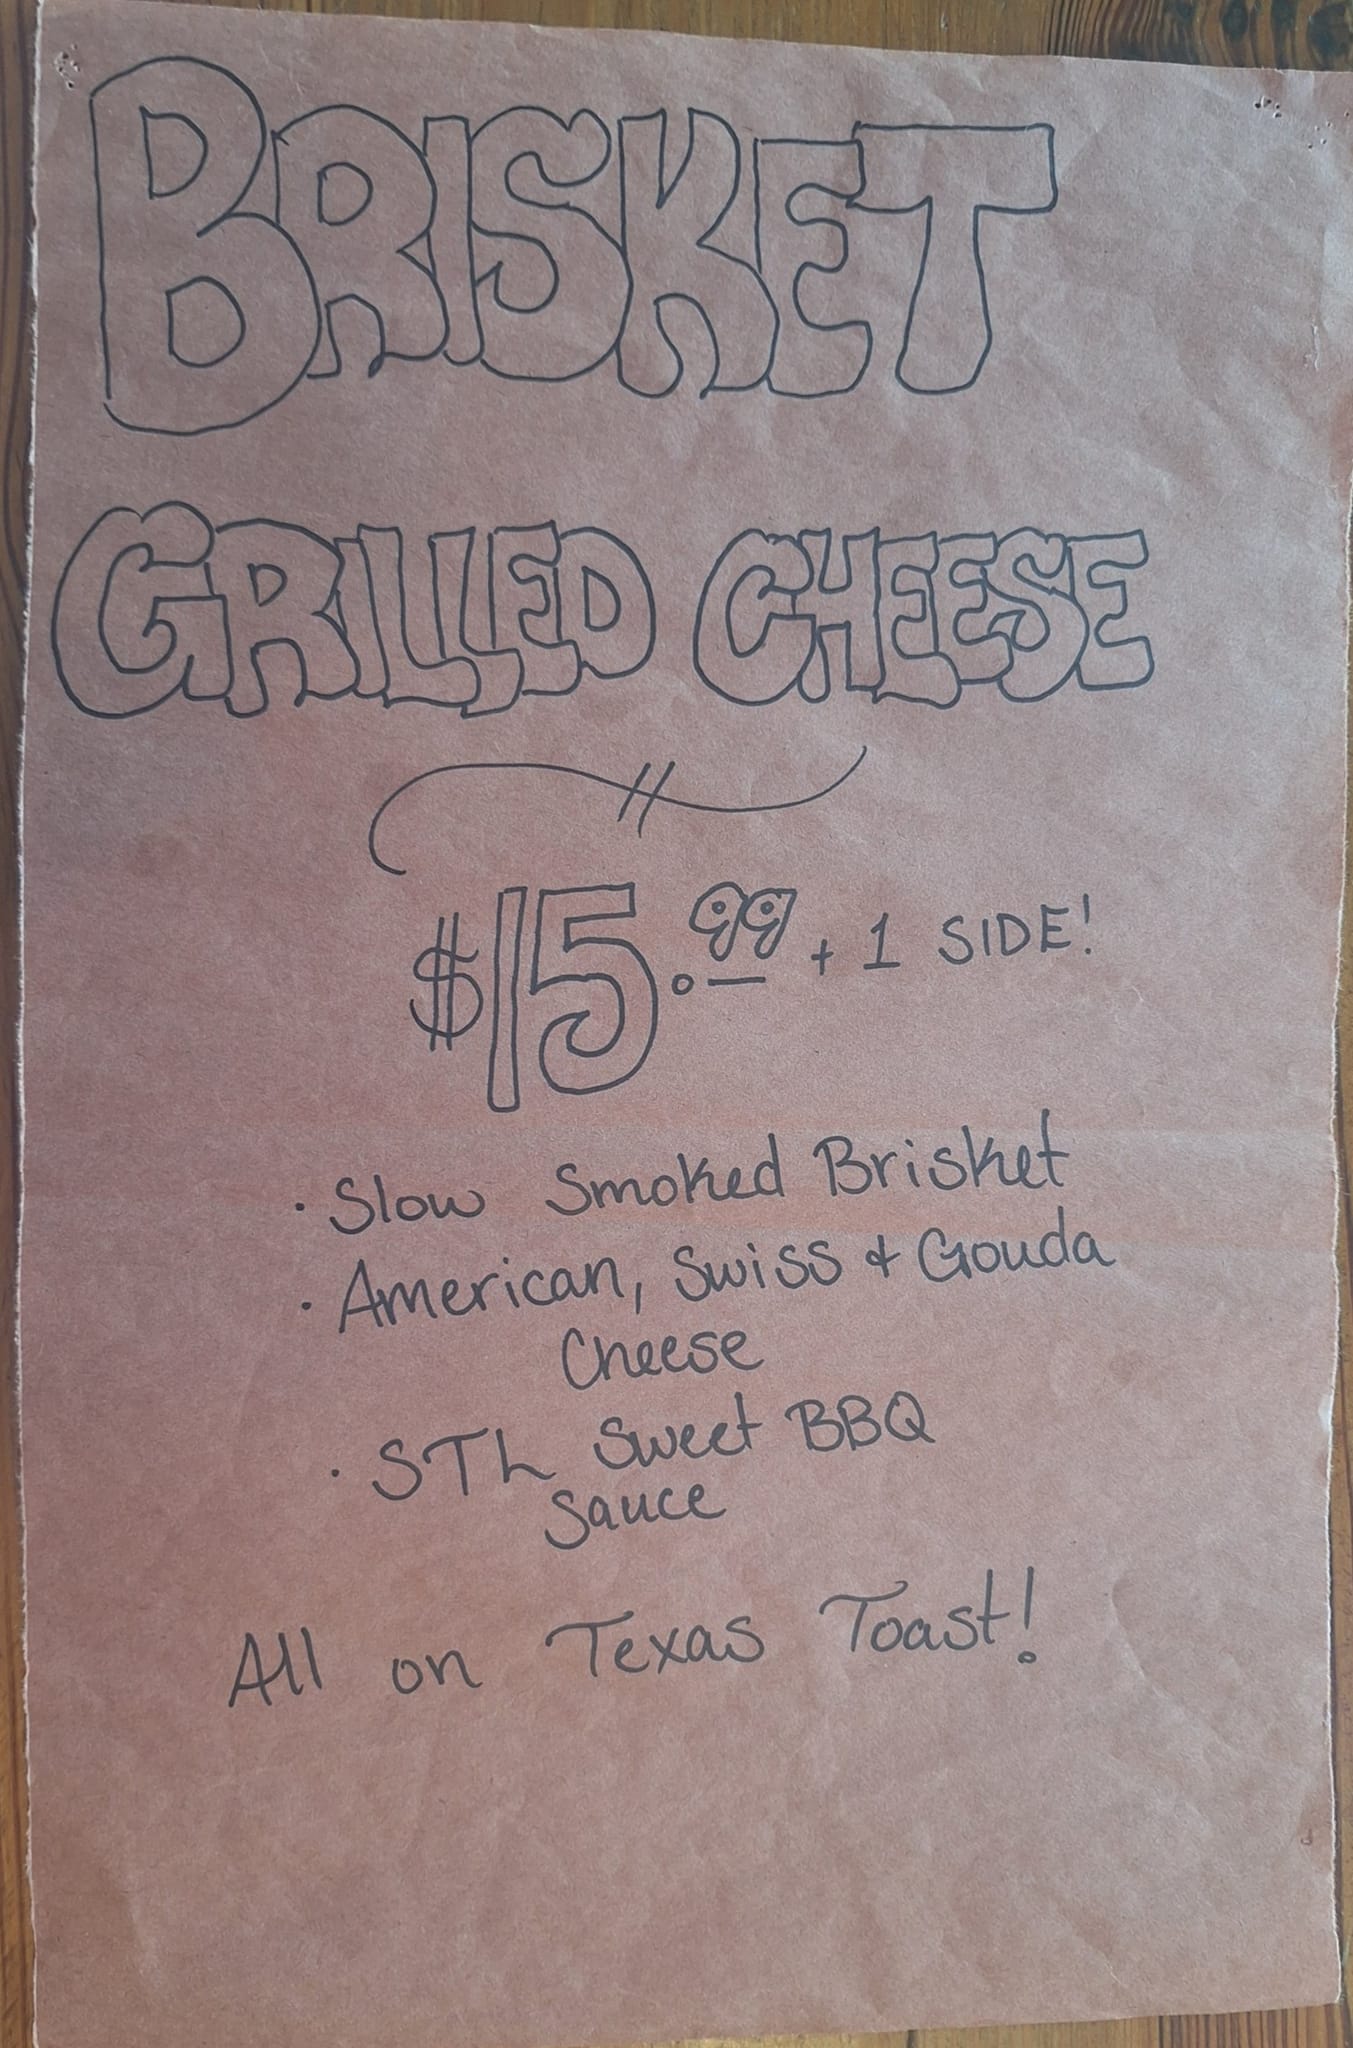 BRISKET
GRILLED CHEESE
$15.99 + 1 SIDE!
· Slow Smoked Brisket
· American, Swiss & Gouda
Cheese
· STL Sweet BBQ
Sauce
All on Texas Toast!